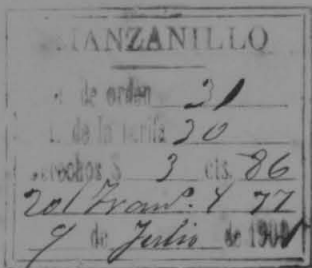 MANZANILLO
de orden 31
de la tarifa 20
Derechos $ 3 cts. 86
201 Fran.º 4 77
9 de Julio de 190